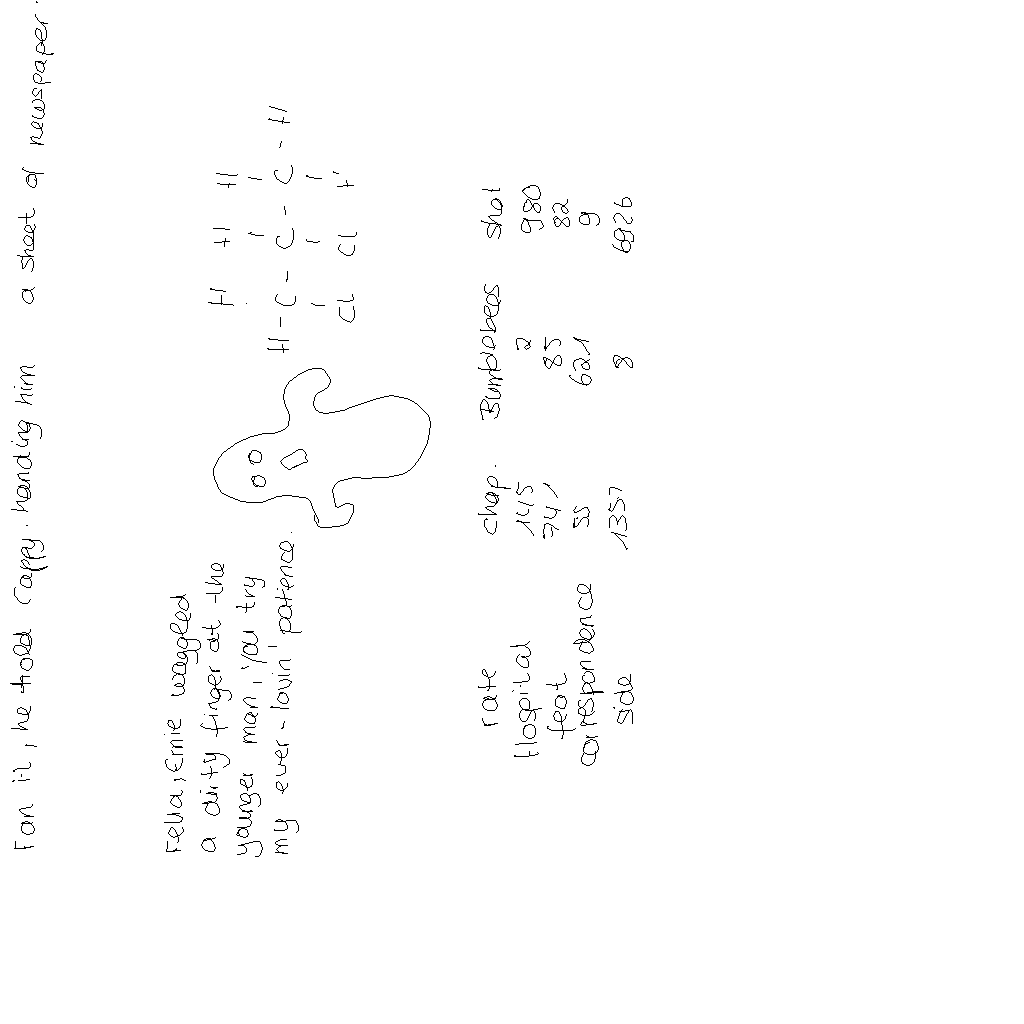 Fan it, he told Cappy. handing him a sheet of newspaper.
Fella, Ernie waggled
a dirty finger at the
younger man, 'you try
my ever-lovin' patience.
H H H
H - C - C - C - H
Cl Cl H
rate chap. Bumblebees shot
Hospital 145 2 980
feat 741 85 82
correspondence 55 621 9
side 1357 8 6926